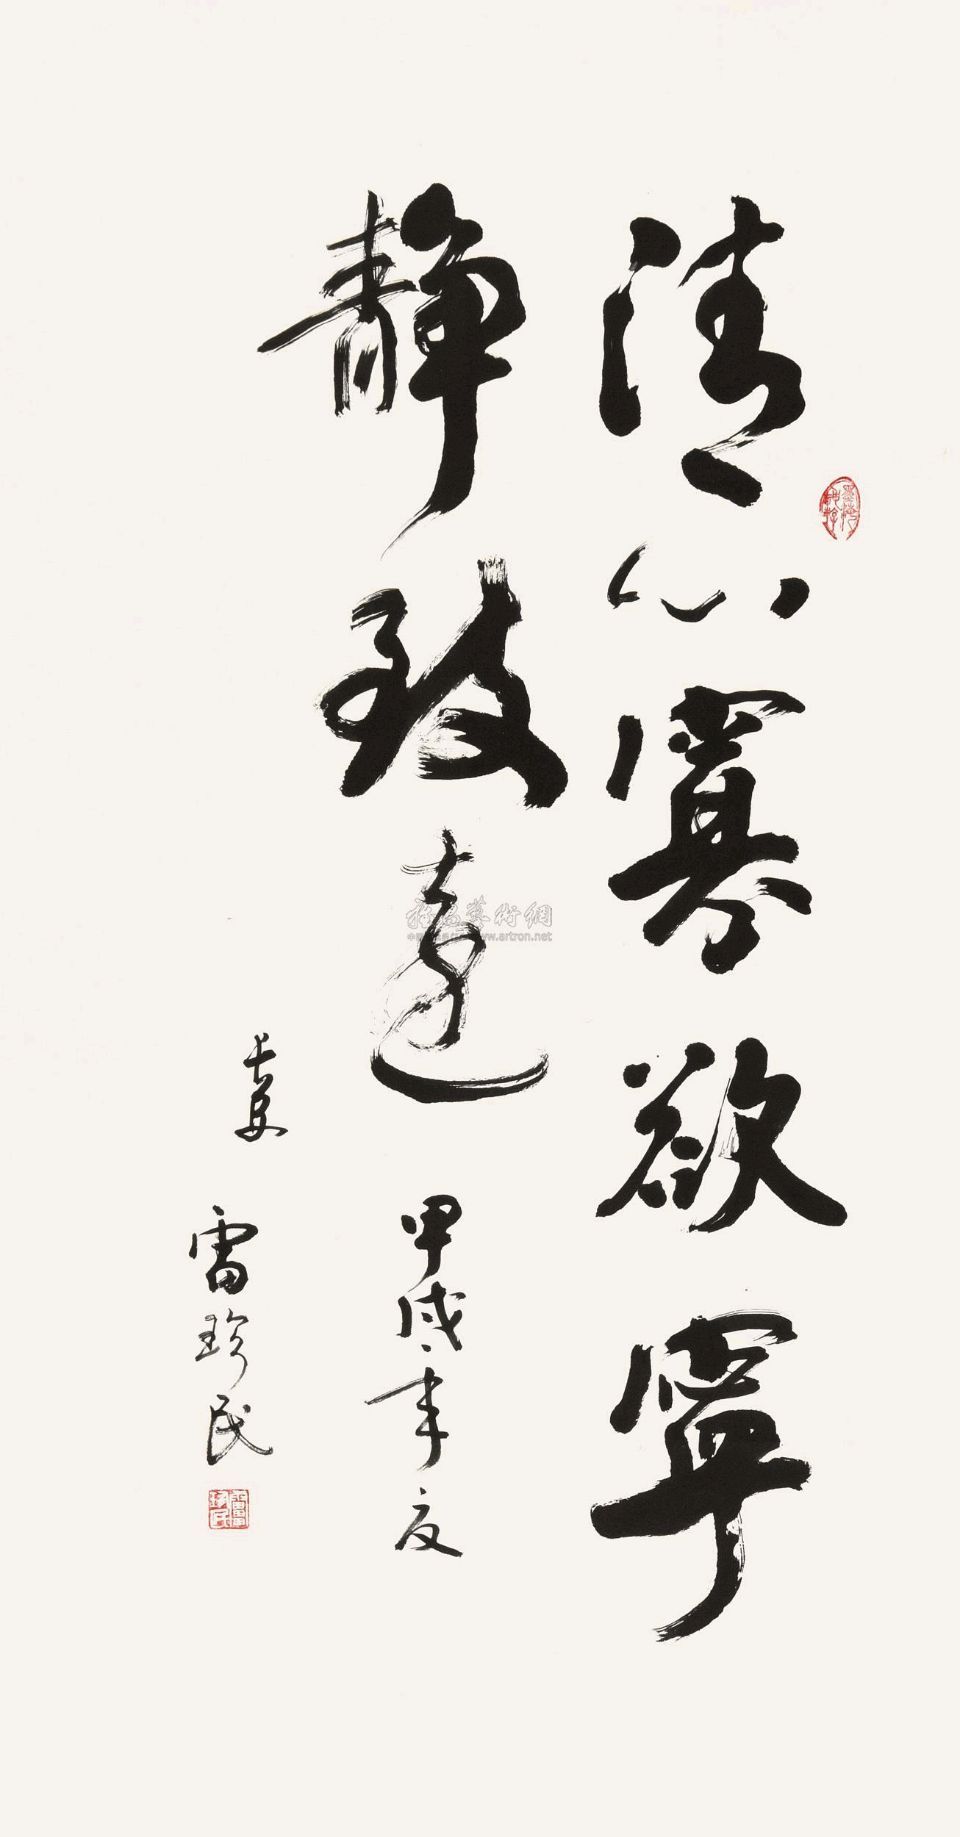 清心寡欲寧
靜致遠
甲戌年夏
長安
雷珍民
雅昌藝術網
www.artron.net
雷珍民